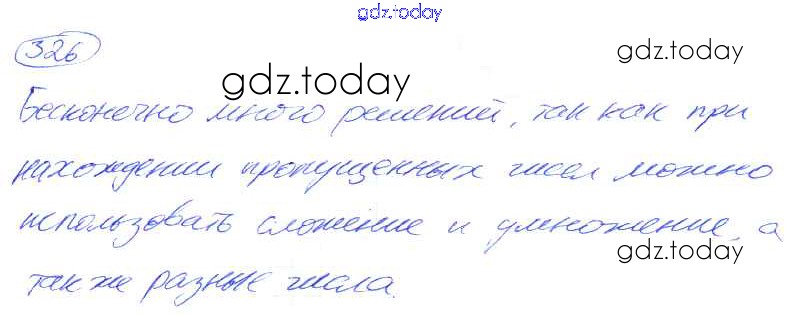 gdz.today
326
gdz.today
gdz.today
Бесконечно много решений, так как при
нахождении пропущенных чисел можно
использовать сложение и умножение, а
gdz.today
также разные числа.
gdz.today